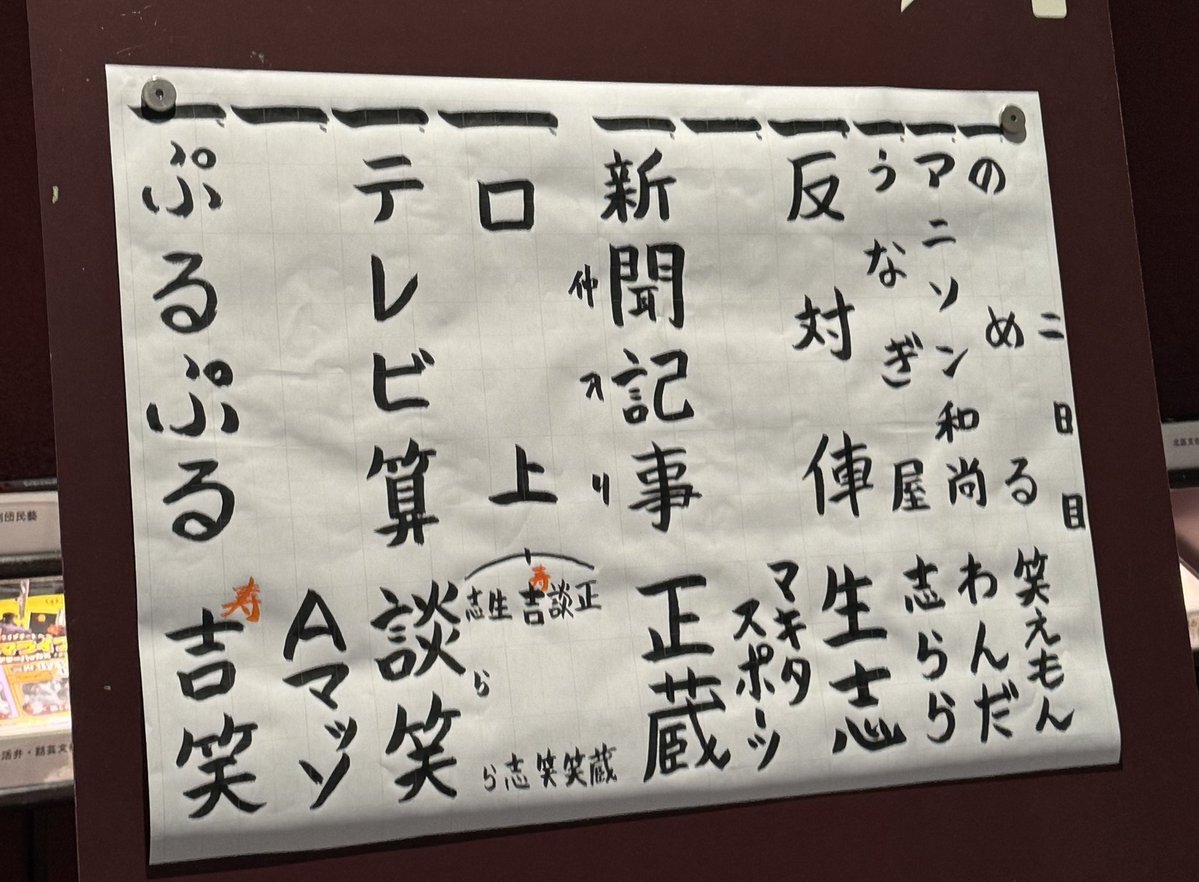 二日目
一 のめる 笑えもん
一 アニソン和尚 わんだ
一 うなぎ屋 志らら
一 反対俥 生志
一 マキタスポーツ
一 新聞記事 正蔵
仲入り
一 口上 正蔵 談笑 寿 吉笑 生志 志らら
一 テレビ算 談笑
一 Aマッソ
一 ぷるぷる 寿 吉笑
団民藝
活弁・話芸文